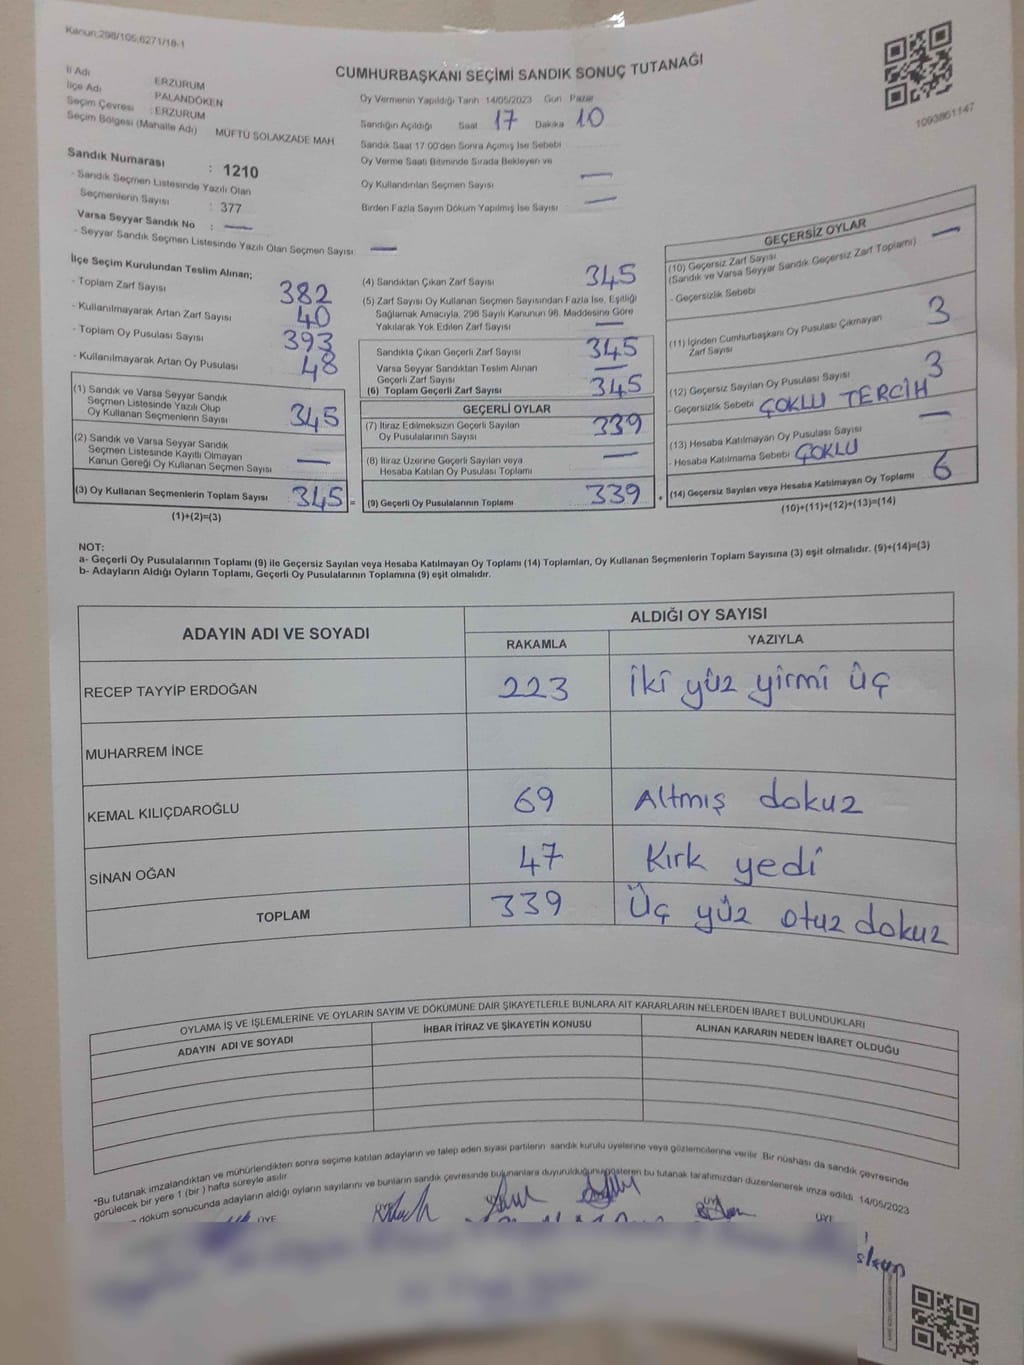 Kanun:298/105;6271/18-1
CUMHURBAŞKANI SEÇİMİ SANDIK SONUÇ TUTANAĞI
1093861147
İl Adı ERZURUM
İlçe Adı PALANDÖKEN
Seçim Çevresi : ERZURUM
Seçim Bölgesi (Mahalle Adı) MÜFTÜ SOLAKZADE MAH
Sandık Numarası : 1210
- Sandık Seçmen Listesinde Yazılı Olan
Seçmenlerin Sayısı : 377
Varsa Seyyar Sandık No : —
- Seyyar Sandık Seçmen Listesinde Yazılı Olan Seçmen Sayısı —
Oy Vermenin Yapıldığı Tarih 14/05/2023 Gün Pazar
Sandığın Açıldığı Saat 17 Dakika 10
Sandık Saat 17:00'den Sonra Açımış İse Sebebi
Oy Verme Saati Bitiminde Sırada Bekleyen ve
Oy Kullandırılan Seçmen Sayısı —
Birden Fazla Sayım Döküm Yapılmış İse Sayısı —
İlçe Seçim Kurulundan Teslim Alınan;
- Toplam Zarf Sayısı 382
- Kullanılmayarak Artan Zarf Sayısı 40
- Toplam Oy Pusulası Sayısı 393
- Kullanılmayarak Artan Oy Pusulası 48
(1) Sandık ve Varsa Seyyar Sandık
Seçmen Listesinde Yazılı Olup
Oy Kullanan Seçmenlerin Sayısı 345
(2) Sandık ve Varsa Seyyar Sandık
Seçmen Listesinde Kayıtlı Olmayan
Kanun Gereği Oy Kullanan Seçmen Sayısı —
(3) Oy Kullanan Seçmenlerin Toplam Sayısı 345 =
(1)+(2)=(3)
(4) Sandıktan Çıkan Zarf Sayısı 345
(5) Zarf Sayısı Oy Kullanan Seçmen Sayısından Fazla İse, Eşitliği
Sağlamak Amacıyla, 298 Sayılı Kanunun 98. Maddesine Göre
Yakılarak Yok Edilen Zarf Sayısı —
Sandıkta Çıkan Geçerli Zarf Sayısı 345
Varsa Seyyar Sandıktan Teslim Alınan
Geçerli Zarf Sayısı —
(6) Toplam Geçerli Zarf Sayısı 345
GEÇERLİ OYLAR
(7) İtiraz Edilmeksizin Geçerli Sayılan
Oy Pusulalarının Sayısı 339
(8) İtiraz Üzerine Geçerli Sayılan veya
Hesaba Katılan Oy Pusulası Toplamı —
(9) Geçerli Oy Pusulalarının Toplamı 339 +
GEÇERSİZ OYLAR
(10) Geçersiz Zarf Sayısı —
(Sandık ve Varsa Seyyar Sandık Geçersiz Zarf Toplamı)
- Geçersizlik Sebebi
(11) İçinden Cumhurbaşkanı Oy Pusulası Çıkmayan
Zarf Sayısı 3
(12) Geçersiz Sayılan Oy Pusulası Sayısı 3
- Geçersizlik Sebebi ÇOKLU TERCİH
(13) Hesaba Katılmayan Oy Pusulası Sayısı —
- Hesaba Katılmama Sebebi ÇOKLU
(14) Geçersiz Sayılan veya Hesaba Katılmayan Oy Toplamı 6
(10)+(11)+(12)+(13)=(14)
NOT:
a- Geçerli Oy Pusulalarının Toplamı (9) ile Geçersiz Sayılan veya Hesaba Katılmayan Oy Toplamı (14) Toplamları, Oy Kullanan Seçmenlerin Toplam Sayısına (3) eşit olmalıdır. (9)+(14)=(3)
b- Adayların Aldığı Oyların Toplamı, Geçerli Oy Pusulalarının Toplamına (9) eşit olmalıdır.
ADAYIN ADI VE SOYADI
ALDIĞI OY SAYISI
RAKAMLA YAZIYLA
RECEP TAYYİP ERDOĞAN 223 İki yüz yirmi üç
MUHARREM İNCE
KEMAL KILIÇDAROĞLU 69 Altmış dokuz
SİNAN OĞAN 47 Kırk yedi
TOPLAM 339 Üç yüz otuz dokuz
OYLAMA İŞ VE İŞLEMLERİNE VE OYLARIN SAYIM VE DÖKÜMÜNE DAİR ŞİKAYETLERLE BUNLARA AİT KARARLARIN NELERDEN İBARET BULUNDUKLARI
ADAYIN ADI VE SOYADI İHBAR İTİRAZ VE ŞİKAYETİN KONUSU ALINAN KARARIN NEDEN İBARET OLDUĞU
"Bu tutanak imzalandıktan ve mühürlendikten sonra seçime katılan adayların ve talep eden siyasi partilerin sandık kurulu üyelerine veya gözlemcilerine verilir. Bir nüshası da sandık çevresinde
görülecek bir yere 1 (bir) hafta süreyle asılır
döküm sonucunda adayların aldığı oyların sayılarını ve bunların sandık çevresinde bulunanlara duyurulduğunu gösteren bu tutanak tarafımızdan düzenlenerek imza edildi. 14/05/2023
ÜYE ÜYE